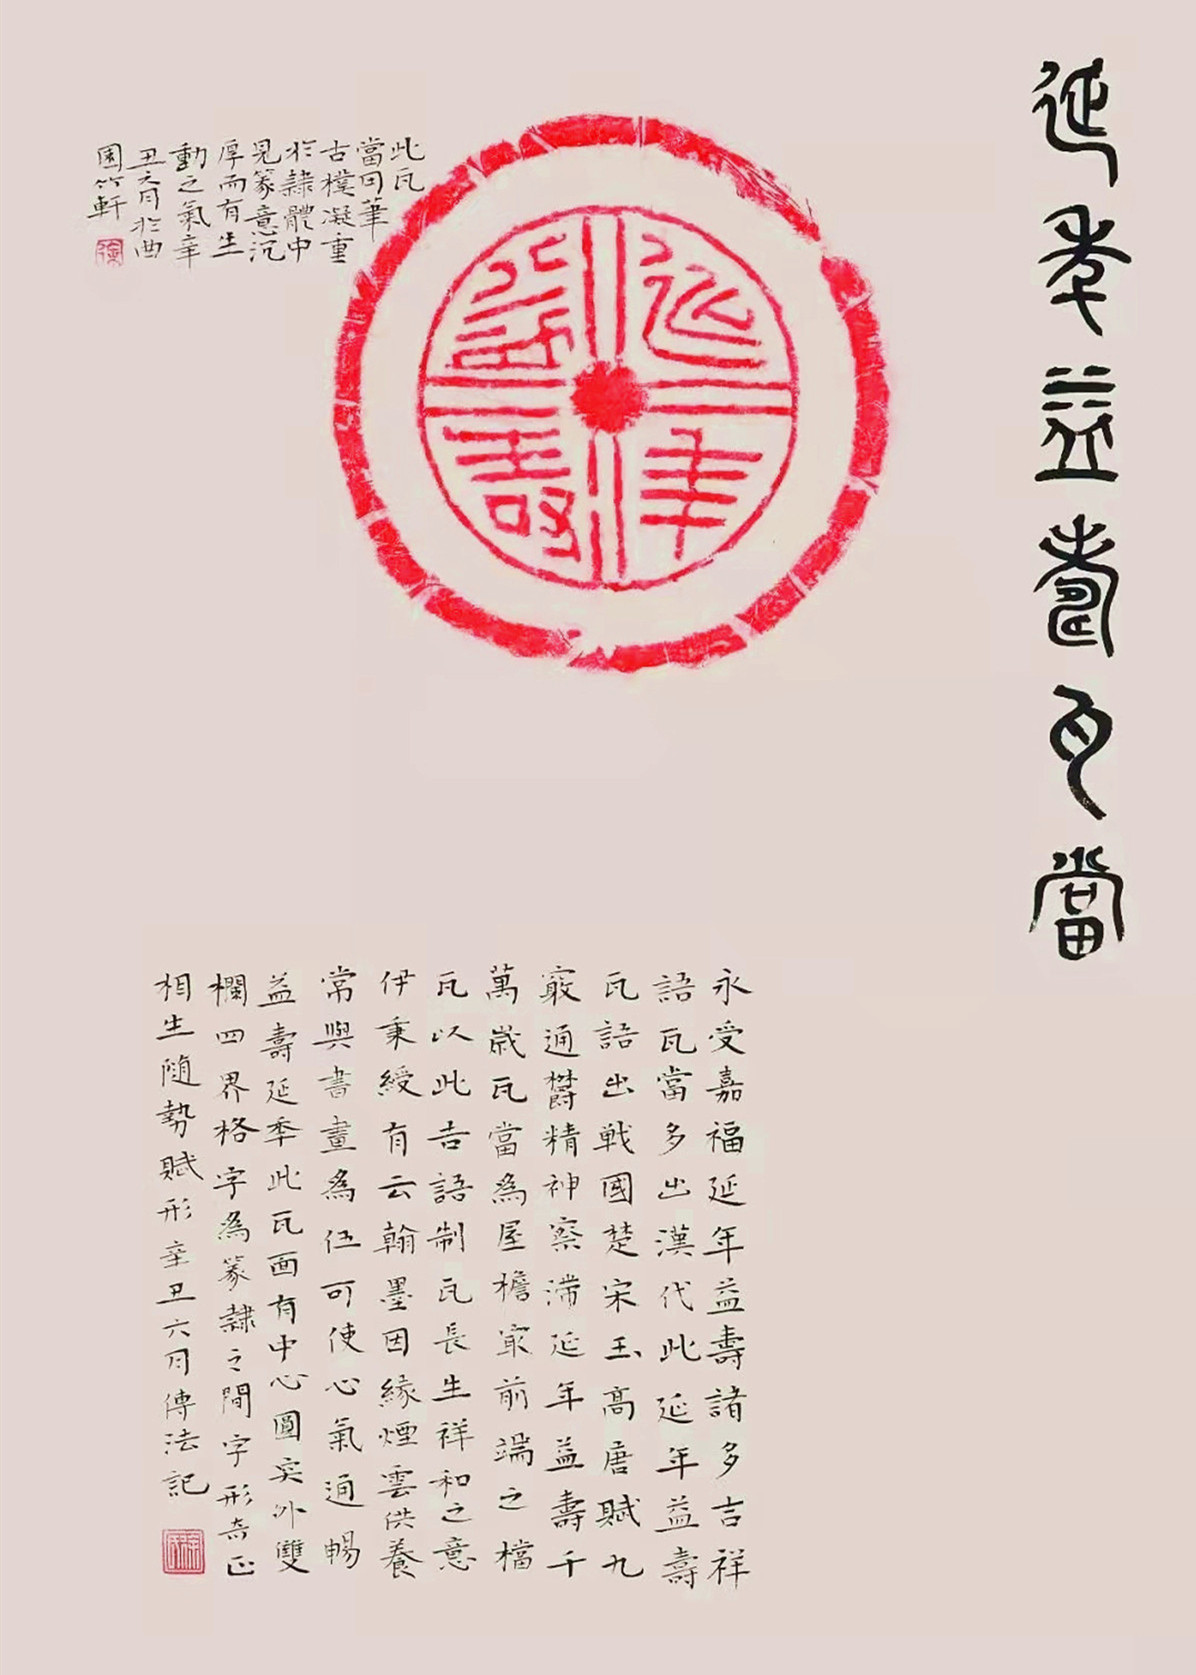 延年益壽瓦當
延年益壽
此瓦
當用筆
古樸凝重
於隸體中
見篆意沉
厚而有生
動之氣辛
丑六月於曲
園竹軒
永受嘉福延年益壽諸多吉祥
語瓦當多出漢代此延年益壽
瓦語出戰國楚宋玉高唐賦九
竅通鬱精神察滯延年益壽千
萬歲瓦當為屋檐最前端之檔
瓦以此吉語制瓦長生祥和之意
伊秉綬有云翰墨因緣煙雲供養
常與書畫為伍可使心氣通暢
益壽延年此瓦面有中心圓突外雙
欄四界格字為篆隸之間字形奇正
相生隨勢賦形辛丑六月傳法記